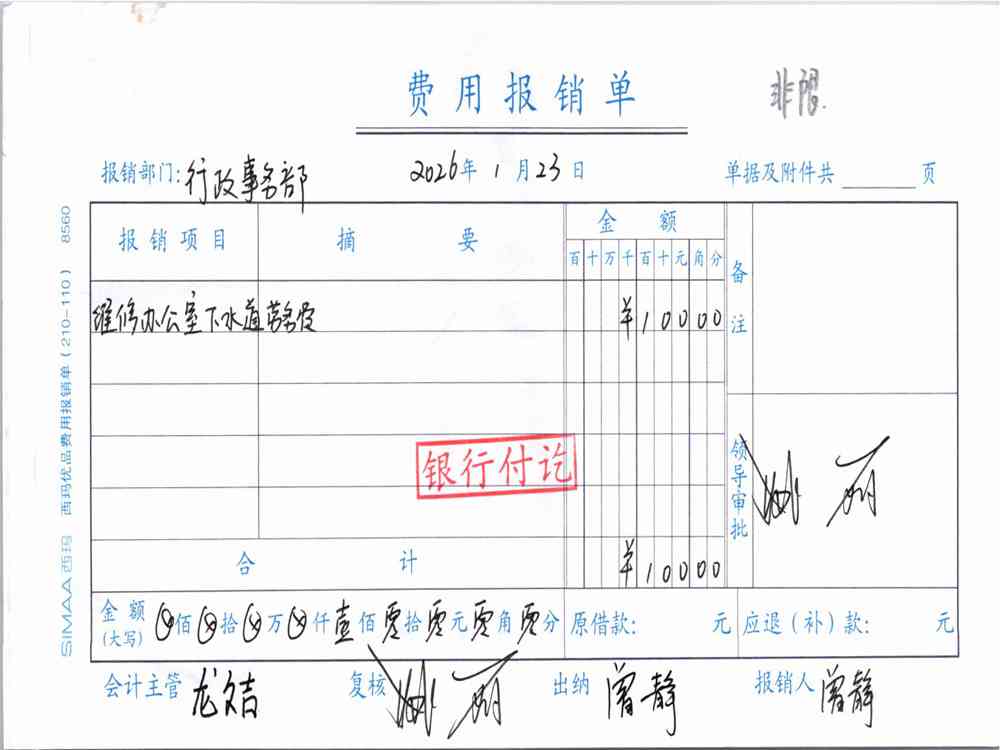 费用报销单
非限.
报销部门:行政事务部 2026年1月23日 单据及附件共 页
报销项目 摘要 金额 备注
百十万千百十元角分
维修办公室下水道劳务费 ¥10000
银行付讫
领导审批
合计 ¥10000
金额(大写) ⊗佰⊗拾⊗万⊗仟壹佰零拾零元零角零分 原借款: 元 应退(补)款: 元
会计主管 龙文吉 复核 出纳 曾静 报销人 曾静
SIMAA西玛 西玛优品费用报销单(210-110) 8560